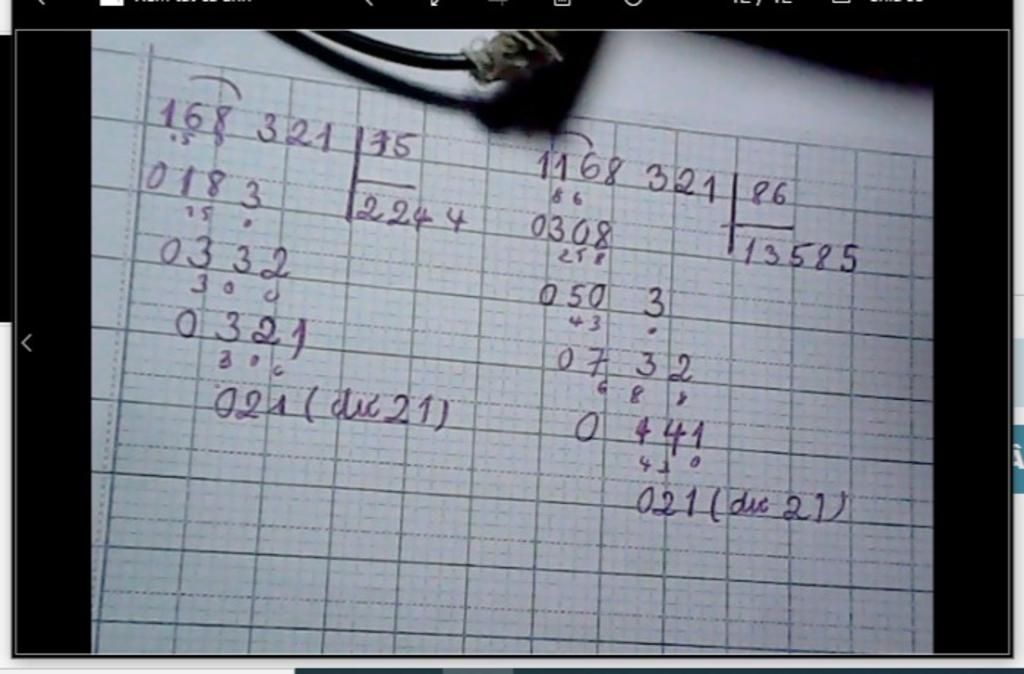 168 321 75
0183 2244
0332
300
0321
300
021 (dư 21)
1168 321 86
86
0308 13585
258
050 3
43
0732
688
0441
430
021 (dư 21)